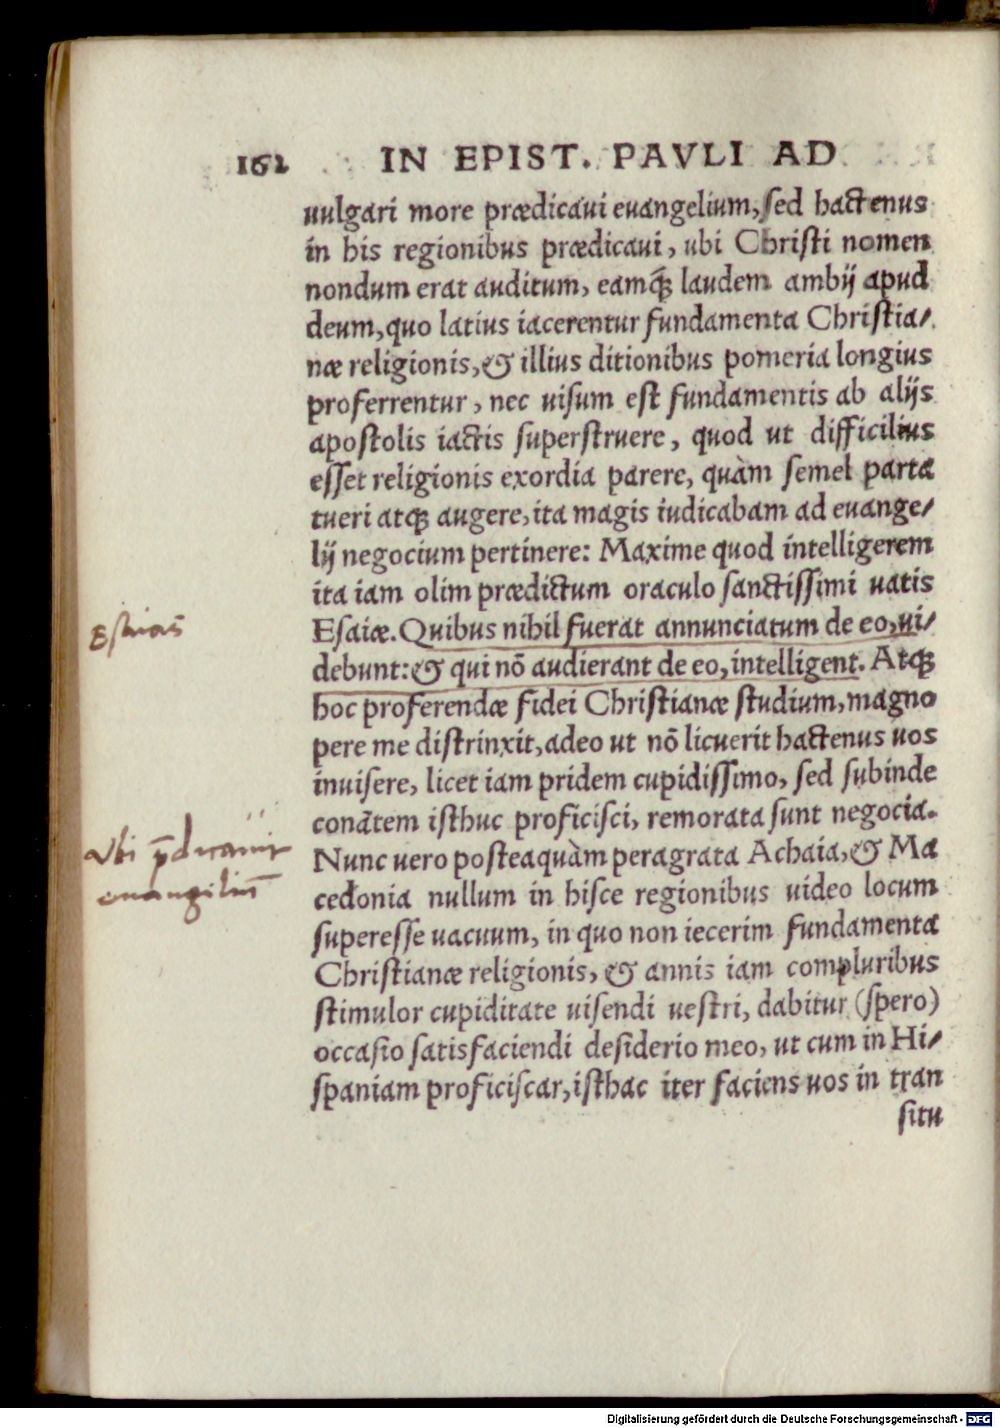 162 IN EPIST. PAVLI AD
uulgari more prædicaui euangelium, ſed hactenus
in his regionibus prædicaui, ubi Chriſti nomen
nondum erat auditum, eamq́ꝫ laudem ambij apud
deum, quo latius iacerentur fundamenta Chriſtia/
næ religionis, & illius ditionibus pomeria longius
proferrentur, nec uiſum eſt fundamentis ab alijs
apoſtolis iactis ſuperſtruere, quod ut difficilius
eſſet religionis exordia parere, quàm ſemel parta
tueri atqꝫ augere, ita magis iudicabam ad euange/
lij negocium pertinere: Maxime quod intelligerem
ita iam olim prædictum oraculo ſanctiſſimi uatis
Eſaiæ. Quibus nihil fuerat annunciatum de eo, ui/
debunt: & qui nō audierant de eo, intelligent. Atqꝫ
hoc proferendæ fidei Chriſtianæ ſtudium, magno
pere me diſtrinxit, adeo ut nō licuerit hactenus uos
inuiſere, licet iam pridem cupidiſſimo, ſed ſubinde
conãtem iſthuc proficiſci, remorata ſunt negocia.
Nunc uero poſteaquàm peragrata Achaia, & Ma
cedonia nullum in hiſce regionibus uideo locum
ſupereſſe uacuum, in quo non iecerim fundamenta
Chriſtianæ religionis, & annis iam compluribus
ſtimulor cupiditate uiſendi ueſtri, dabitur (ſpero)
occaſio ſatisfaciendi deſiderio meo, ut cum in Hi/
ſpaniam proficiſcar, iſthac iter faciens uos in tran
ſitu
Eſaias
Vbi p̄dicauit
euangeliū
Digitalisierung gefördert durch die Deutsche Forschungsgemeinschaft - DFG